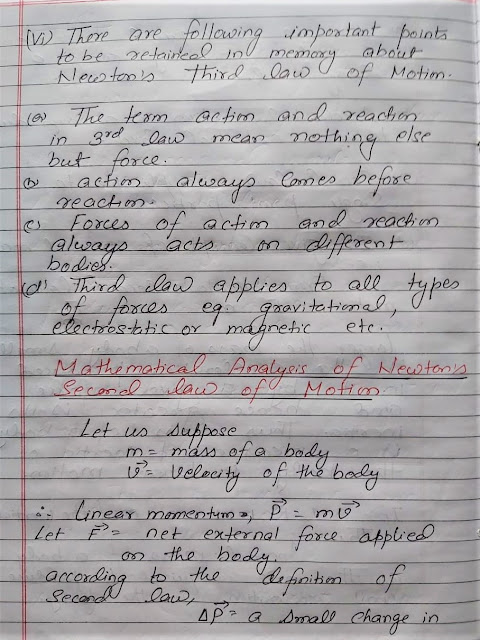 (vi) There are following important points
to be retained in memory about
Newton's Third law of Motion.
(a) The term action and reaction
in 3rd law mean nothing else
but force.
(b) action always Comes before
reaction.
(c) Forces of action and reaction
always acts on different
bodies.
(d) Third law applies to all types
of forces eg. gravitational,
electrostatic or magnetic etc.
Mathematical Analysis of Newton's
Second law of Motion
Let us suppose
m = mass of a body
v⃗ = Velocity of the body
∴ Linear momentum =, P⃗ = mv⃗
Let F⃗ = net external force applied
on the body.
according to the definition of
Second law,
ΔP⃗ = a small change in